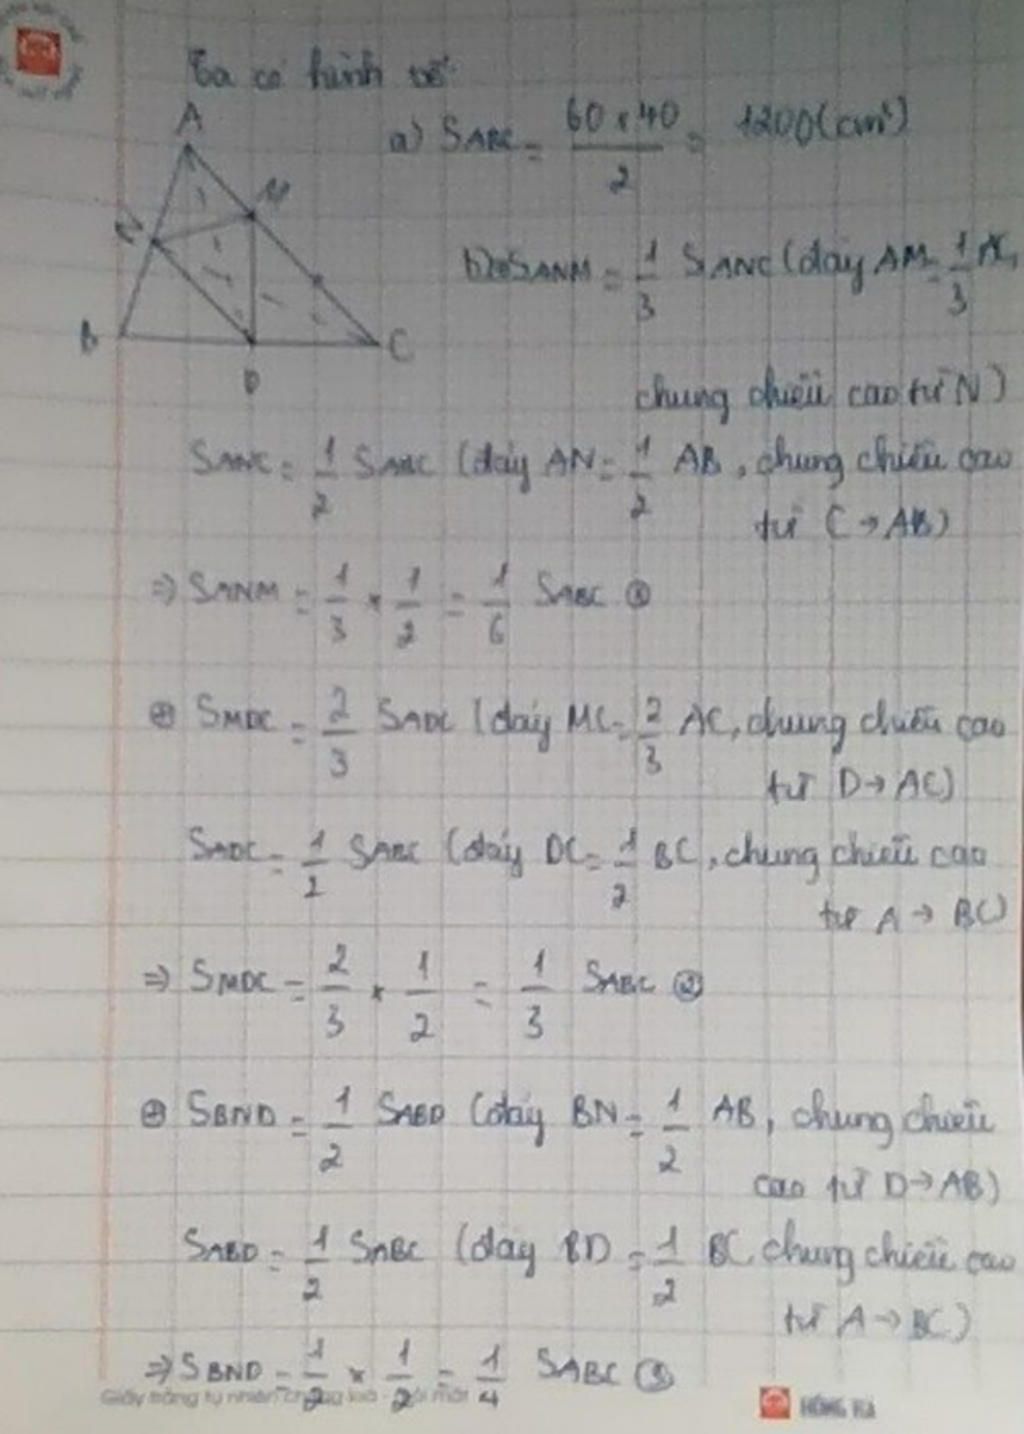 Ta có hình vẽ:
A
M
N
B
D
C
a) SABC = 60 x 40 / 2 = 1200 (cm²)
b) SANM = 1/3 SANC (đáy AM = 1/3 AC,
chung chiều cao từ N)
SANC = 1/2 SABC (đáy AN = 1/2 AB, chung chiều cao
từ C → AB)
=> SANM = 1/3 x 1/2 = 1/6 SABC ①
⊕ SMDC = 2/3 SADC (đáy MC = 2/3 AC, chung chiều cao
từ D → AC)
SADC = 1/2 SABC (đáy DC = 1/2 BC, chung chiều cao
từ A → BC)
=> SMDC = 2/3 x 1/2 = 1/3 SABC ②
⊕ SBND = 1/2 SABD (đáy BN = 1/2 AB, chung chiều
cao từ D → AB)
SABD = 1/2 SABC (đáy BD = 1/2 BC, chung chiều cao
từ A → BC)
=> SBND = 1/2 x 1/2 = 1/4 SABC ③
Giấy trắng tự nhiên
HỒNG HÀ